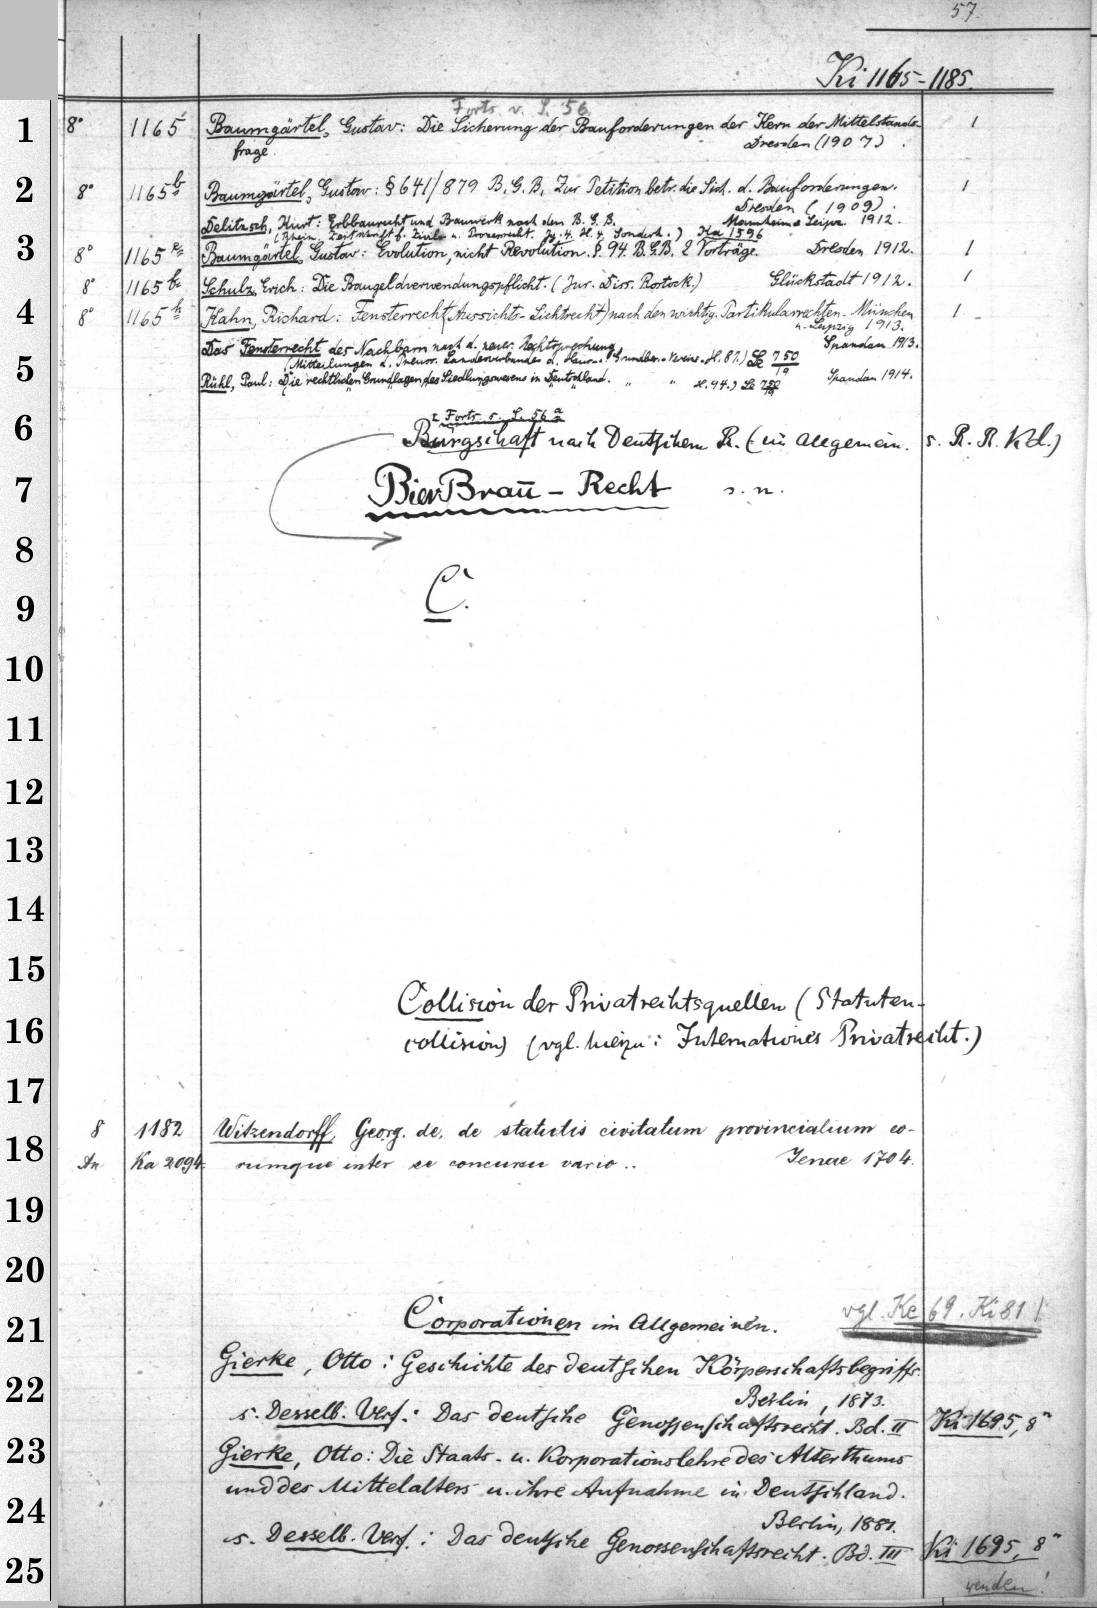 57.
Ki 1165-1185.
Forts v. S. 56
1
8° 1165 Baumgärtel, Gustav: Die Sicherung der Bauforderungen der Kern der Mittelstands- 1
frage. Dresden (1907).
2
8° 1165 b Baumgärtel, Gustav: § 641/879 B. G. B. Zur Petition betr. die Sich. d. Bauforderungen. 1
Dresden (1909).
Delitzsch, Kurt: Erbbaurecht und Bauwerk nach dem B. G. B. Mannheim & Leipz. 1912.
(Rhein. Zeitschrift f. Zivil- u. Prozessrecht. Jg. 4. H. 4. Sonderh.) Ka 1596
3
8° 1165 Baumgärtel, Gustav: Evolution, nicht Revolution. § 94. B.G.B. 2 Vorträge. Dresden 1912. 1
8° 1165 Schulz, Erich: Die Baugeldverwendungspflicht. (Jur. Diss. Rostock.) Glückstadt 1912. 1
4
8° 1165 h Kahn, Richard: Fensterrecht (Aussichts- Lichtrecht) nach den wichtig. Partikularrechten. München 1
u. Leipzig 1913.
Das Fensterrecht des Nachbarn nach d. neuer. Rechtsprechung Spandau 1913.
5
(Mitteilungen d. Preuss. Landesverbandes d. Haus- u. Grundbes.-Vereine. H. 81.) 750
Rühl, Paul: Die rechtlichen Grundlagen des Siedlungswesens in Deutschland. " " H. 94.) Spandau 1914.
Forts. s. S. 56 a
6
Bürgschaft nach Deutschem R. (im Allgemein. s. R. R. Kd.)
7
BierBrau - Recht s. u.
8
C.
9
10
11
12
13
14
15
Collision der Privatrechtsquellen (Statuten-
16
collision) (vgl. hiezu: Internationes Privatrecht.)
17
8 1182 Witzendorff, Georg. de, de statutis civitatum provincialium eo-
18
An Ka 2094. rumque inter se concursu vario .. Jenae 1704.
19
20
vgl. Kc 69. Ki 81!
21
Corporationen im Allgemeinen.
Gierke, Otto: Geschichte des deutschen Körperschaftsbegriffs.
22
Berlin, 1873.
s. Desselb. Verf.: Das deutsche Genossenschaftsrecht. Bd. II Ki 1695, 8°
23
Gierke, Otto: Die Staats- u. Korporationslehre des Alterthums
und des Mittelalters u. ihre Aufnahme in Deutschland.
24
Berlin, 1881.
s. Desselb. Verf.: Das deutsche Genossenschaftsrecht. Bd. III Ki 1695, 8°
25
wenden!